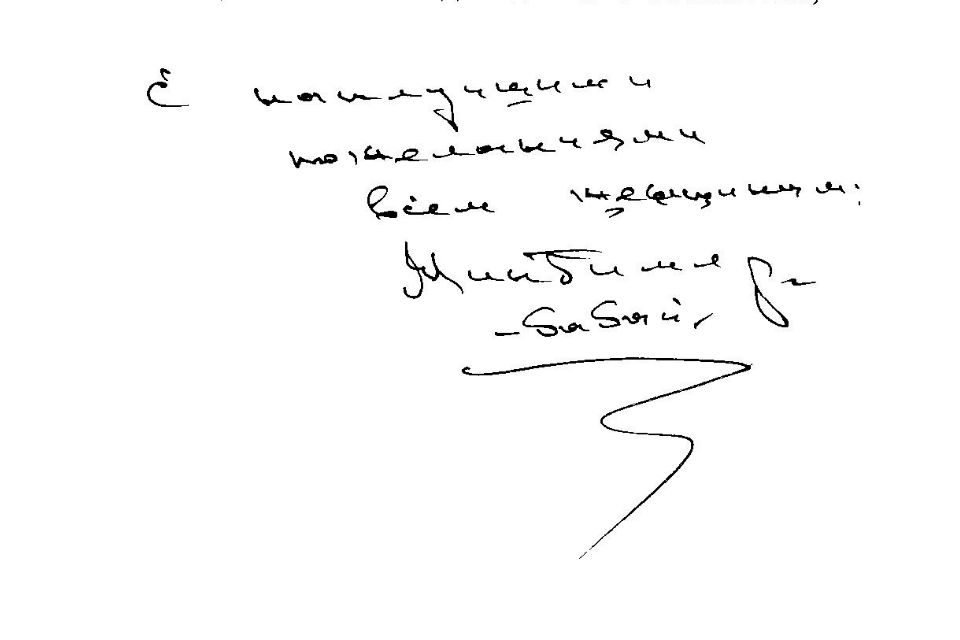 С наилучшими
пожеланиями
всем женщинам:
Минтимер
-бабай,